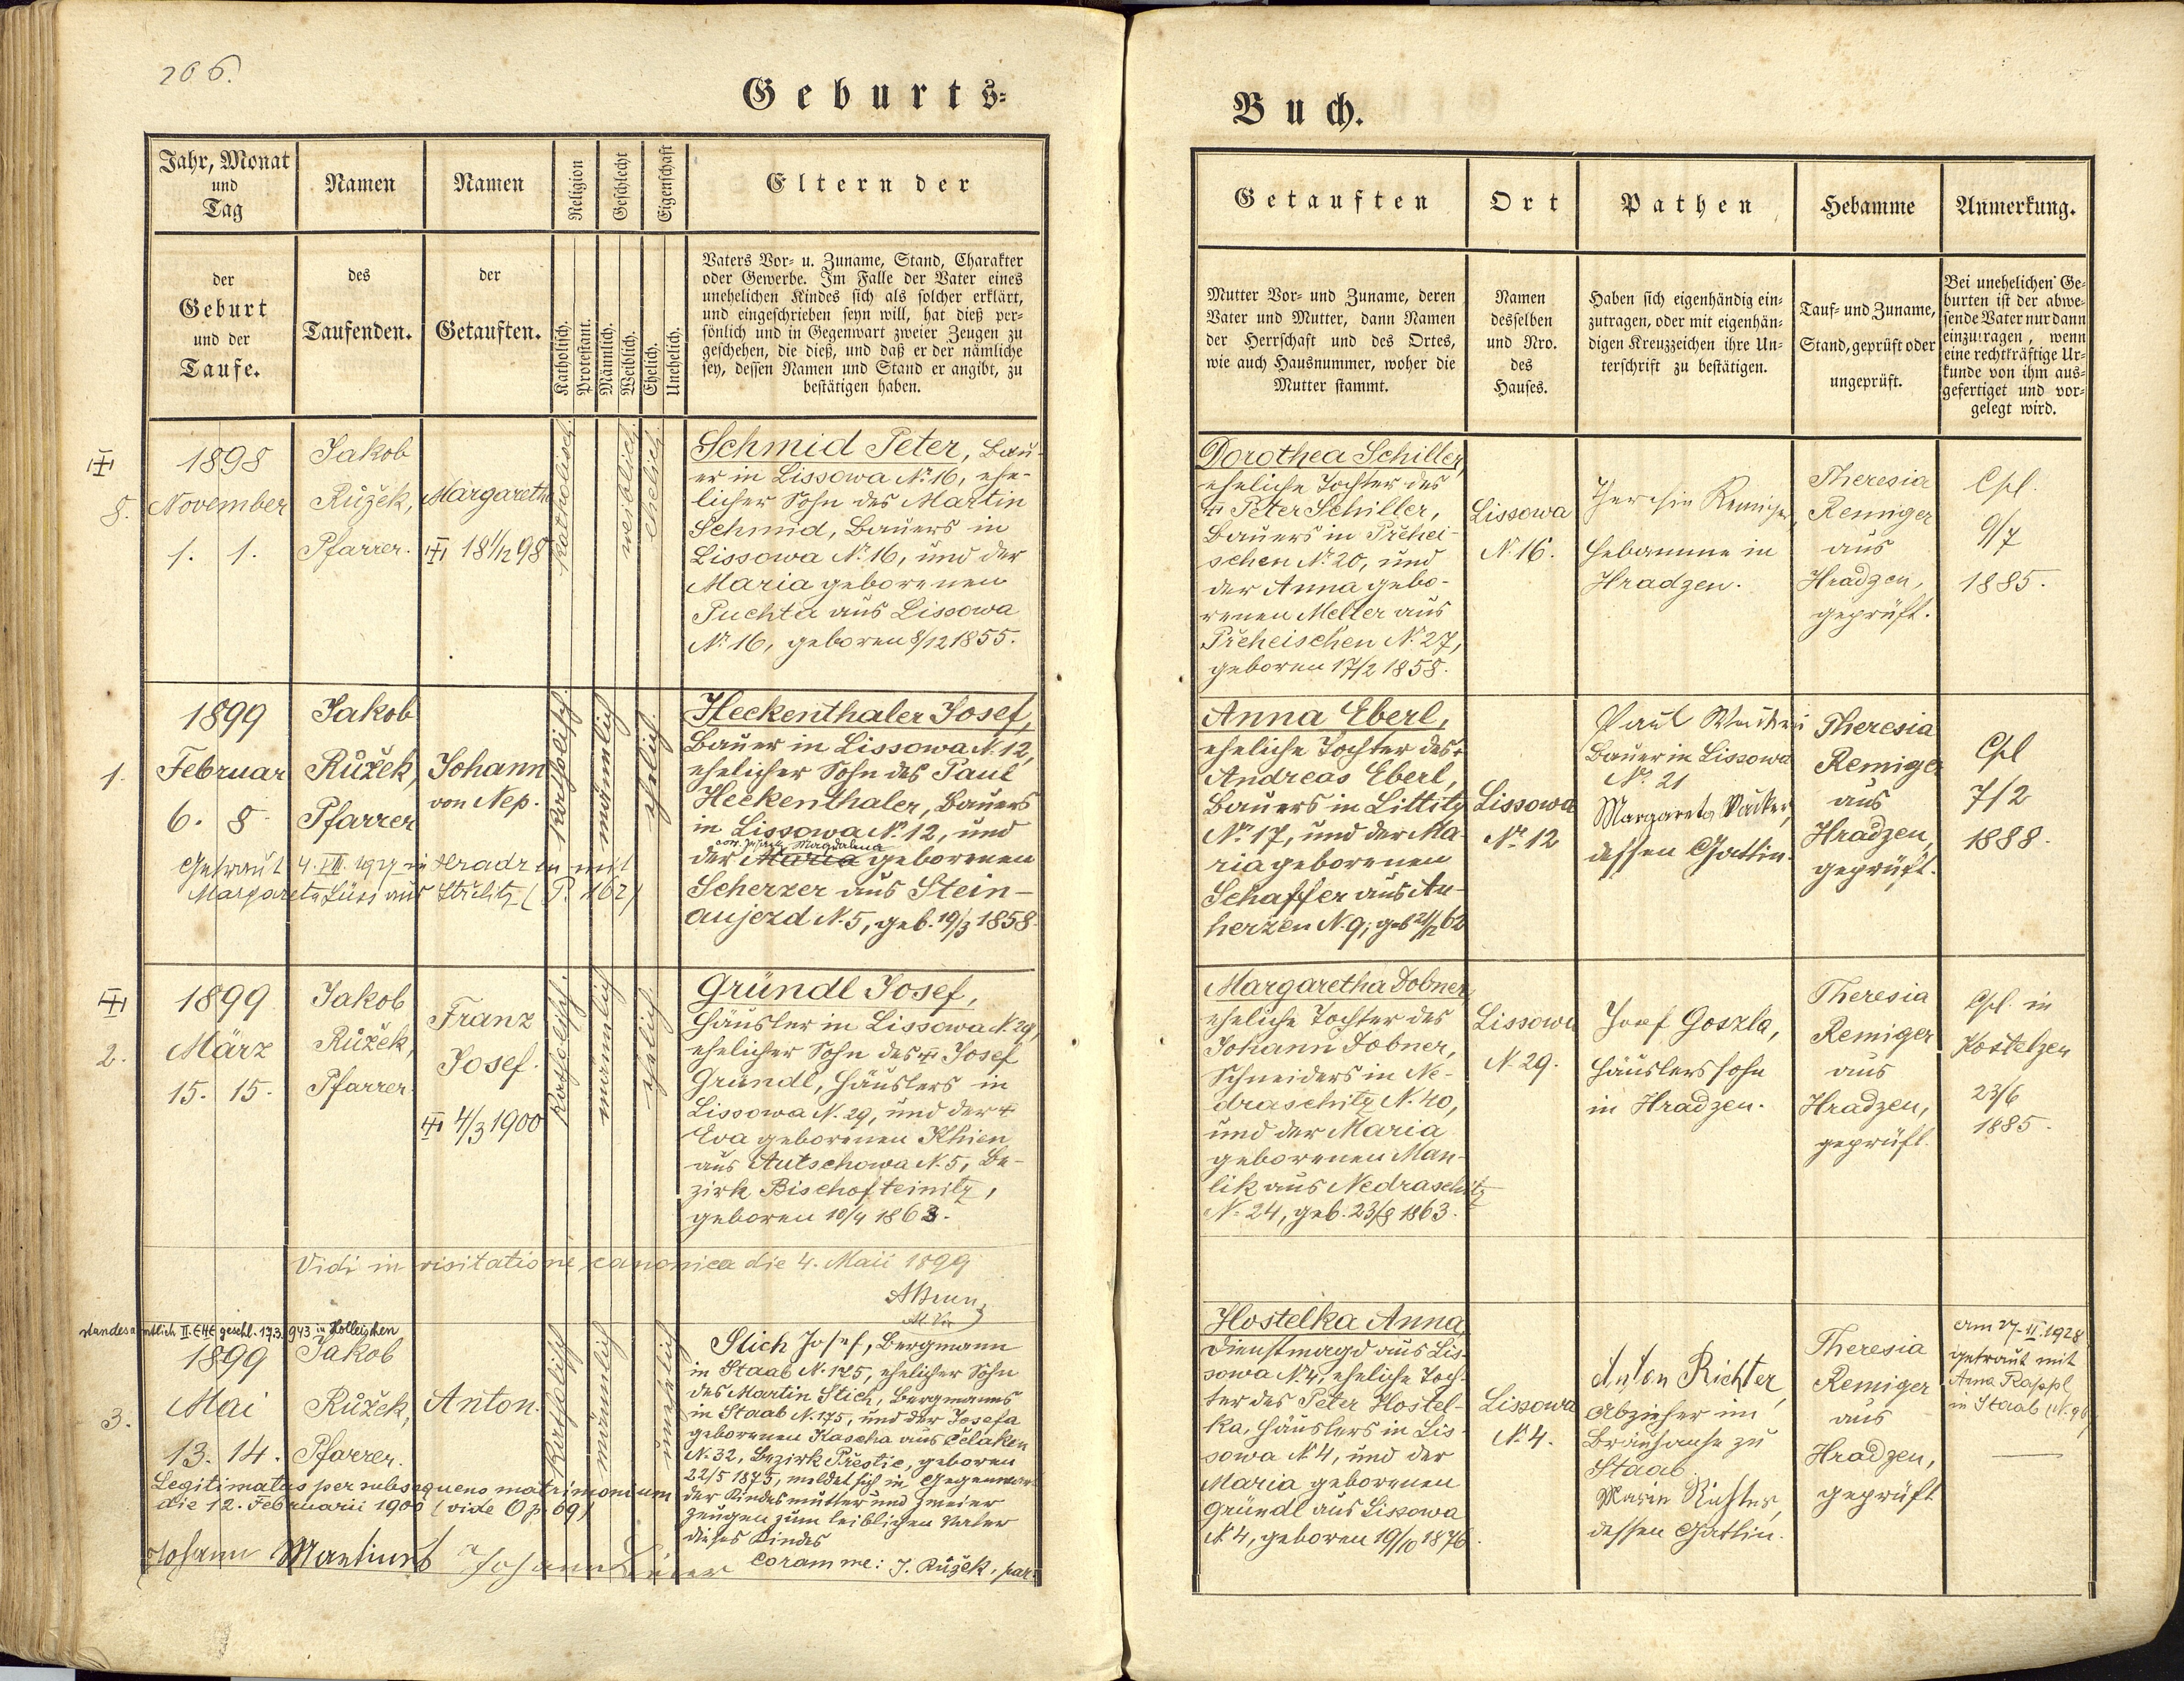 206.
Geburts-
Jahr, Monat
und
Tag
Namen
Namen
Religion
Geschlecht
Eigenschaft
Eltern der
der
Geburt
und der
Taufe.
des
Taufenden.
der
Getauften.
Katholisch.
Protestant.
Männlich.
Weiblich.
Ehelich.
Unehelich.
Vaters Vor- u. Zuname, Stand, Charakter
oder Gewerbe. Im Falle der Vater eines
unehelichen Kindes sich als solcher erklärt,
und eingeschrieben seyn will, hat dieß per-
sönlich und in Gegenwart zweier Zeugen zu
geschehen, die dieß, und daß er der nämliche
sey, dessen Namen und Stand er angibt, zu
bestätigen haben.
8.
1898
November
1. 1.
Jakob
Růžek,
Pfarrer.
Margaretha
18 1/12 98
katholisch
weiblich
ehelich
Schmid Peter, Bau-
er in Lissowa № 16, ehe-
licher Sohn des Martin
Schmid, Bauers in
Lissowa № 16, und der
Maria geborenen
Puchta aus Lissowa
№ 16, geboren 8/12 1855.
1.
1899
Februar
6. 8.
Jakob
Růžek,
Pfarrer
Johann
von Nep.
katholisch
männlich
ehelich
Getraut 4. VIII. 1927 in Hradzen mit
Margareta Süss aus Střelitz (P. 162)
Heckenthaler Josef,
Bauer in Lissowa N. 12,
ehelicher Sohn des Paul
Heckenthaler, Bauers
in Lissowa № 12, und
Magdalena
der Maria geborenen
Scherzer aus Stein-
aujezd N. 5, geb. 19/3 1858.
2.
1899
März
15. 15.
Jakob
Růžek,
Pfarrer.
Franz
Josef.
4/3 1900
katholisch
männlich
ehelich
Gründl Josef,
Häusler in Lissowa N. 29,
ehelicher Sohn des Josef
Gründl, Häuslers in
Lissowa N. 29, und der
Eva geborenen Khien
aus Autschowa N. 5, Be-
zirk Bischofteinitz,
geboren 10/4 1863.
Vidi in visitatione canonica die 4. Maii 1899
standesamtlich II. EHE geschl. 17.3.1943 in Holleischen
3.
1899
Mai
13. 14.
Jakob
Růžek,
Pfarrer.
Anton.
katholisch
männlich
unehelich
Legitimatus per subsequens matrimonium
die 12. Februarii 1900 (vide O p. 69)
Stich Josef, Bergmann
in Staab N. 175, ehelicher Sohn
des Martin Stich, Bergmanns
in Staab N. 175, und der Josefa
geborenen Kascha aus Čelaken
N. 32, Bezirk Přestic, geboren
22/5 1875, meldet sich in Gegenwart
der Kindesmutter und zweier
Zeugen zum leiblichen Vater
dieses Kindes
Coram me: J. Růžek, par:
Johann
Johann
Buch.
Getauften
Ort
Pathen
Hebamme
Anmerkung.
Mutter Vor- und Zuname, deren
Vater und Mutter, dann Namen
der Herrschaft und des Ortes,
wie auch Hausnummer, woher die
Mutter stammt.
Namen
desselben
und Nro.
des
Hauses.
Haben sich eigenhändig ein-
zutragen, oder mit eigenhän-
digen Kreuzzeichen ihre Un-
terschrift zu bestätigen.
Tauf- und Zuname,
Stand, geprüft oder
ungeprüft.
Bei unehelichen Ge-
burten ist der abwe-
sende Vater nur dann
einzutragen, wenn
eine rechtkräftige Ur-
kunde von ihm aus-
gefertiget und vor-
gelegt wird.
Dorothea Schiller,
eheliche Tochter des
Peter Schiller,
Bauers in Přehei-
schen № 20, und
der Anna gebo-
renen Meller aus
Přeheischen N. 27,
geboren 17/2 1858.
Lissowa
N. 16.
Remiger,
Hebamme in
Hradzen.
Theresia
Remiger
aus
Hradzen,
geprüft.
Cpl.
9/7
1885.
Anna Eberl,
eheliche Tochter des
Andreas Eberl,
Bauers in Littitz
№ 17, und der Ma-
ria geborenen
Schaffer aus Au-
herzen N. 9, geb. 21/12 62
Lissowa
№ 12
Paul
Bauer in Lissowa
№ 21
Margareta
dessen Gattin.
Theresia
Remiger
aus
Hradzen,
geprüft.
Cpl
7/2
1888.
Margaretha Dobner,
eheliche Tochter des
Johann Dobner,
Schneiders in Ne-
draschitz N. 40,
und der Maria
geborenen Man-
lik aus Nedraschitz
N. 24, geb. 23/8 1863.
Lissowa
N. 29.
Josef Goszla,
Häuslerssohn
in Hradzen.
Theresia
Remiger
aus
Hradzen,
geprüft.
Cpl. in
Kostelzen
23/6
1885.
Hostelka Anna,
Dienstmagd aus Lis-
sowa N. 4, eheliche Toch-
ter des Peter Hostel-
ka, Häuslers in Lis-
sowa № 4, und der
Maria geborenen
Gründl aus Lissowa
N. 4, geboren 19/10 1876.
Lissowa
N. 4.
Anton Richter,
Abzieher im
Bräuhause zu
Staab.
Maria Richter,
dessen Gattin.
Theresia
Remiger
aus
Hradzen,
geprüft
Am 27.II.1928
getraut mit
Anna Rappl
in Staab